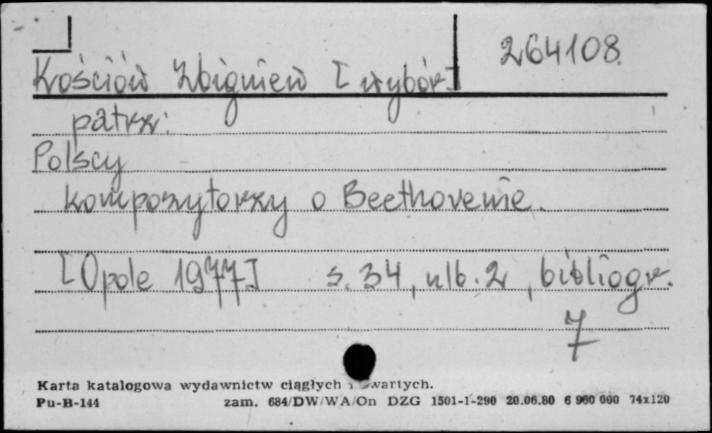 264108.
Kościów Zbigniew [wybór]
patrz:
Polscy
kompozytorzy o Beethovenie.
[Opole 1977] s. 34, nlb. 2, bibliogr.
7
Karta katalogowa wydawnictw ciągłych i zwartych.
Pu-B-144 zam. 684/DW/WA/On DZG 1501-1-290 20.06.80 6 960 000 74x120